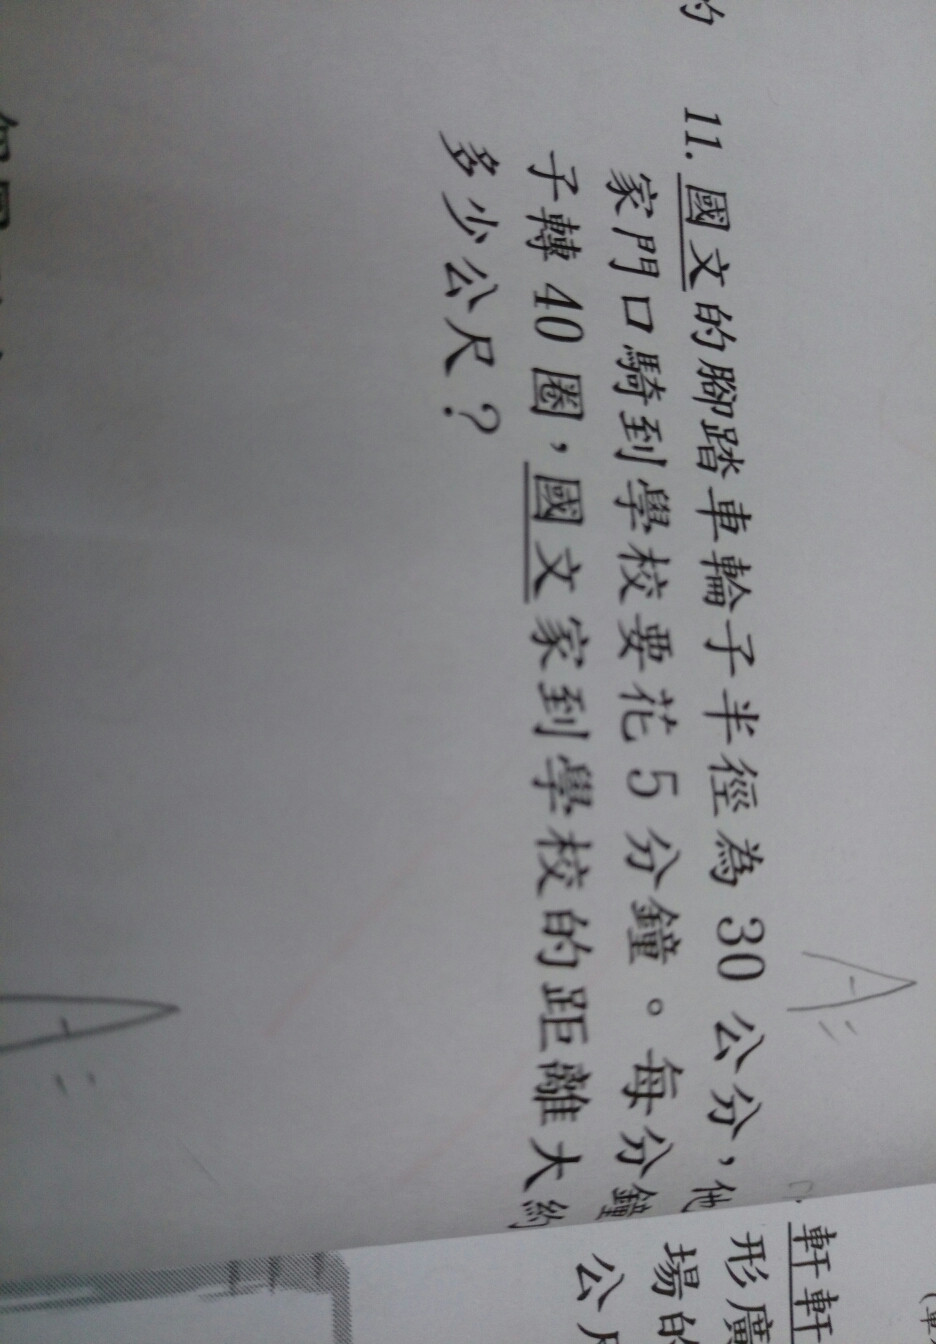 的
11. 國文的腳踏車輪子半徑為 30 公分，他
家門口騎到學校要花 5 分鐘。每分鐘
子轉 40 圈，國文家到學校的距離大約
多少公尺？
軒軒
形廣
場的
公